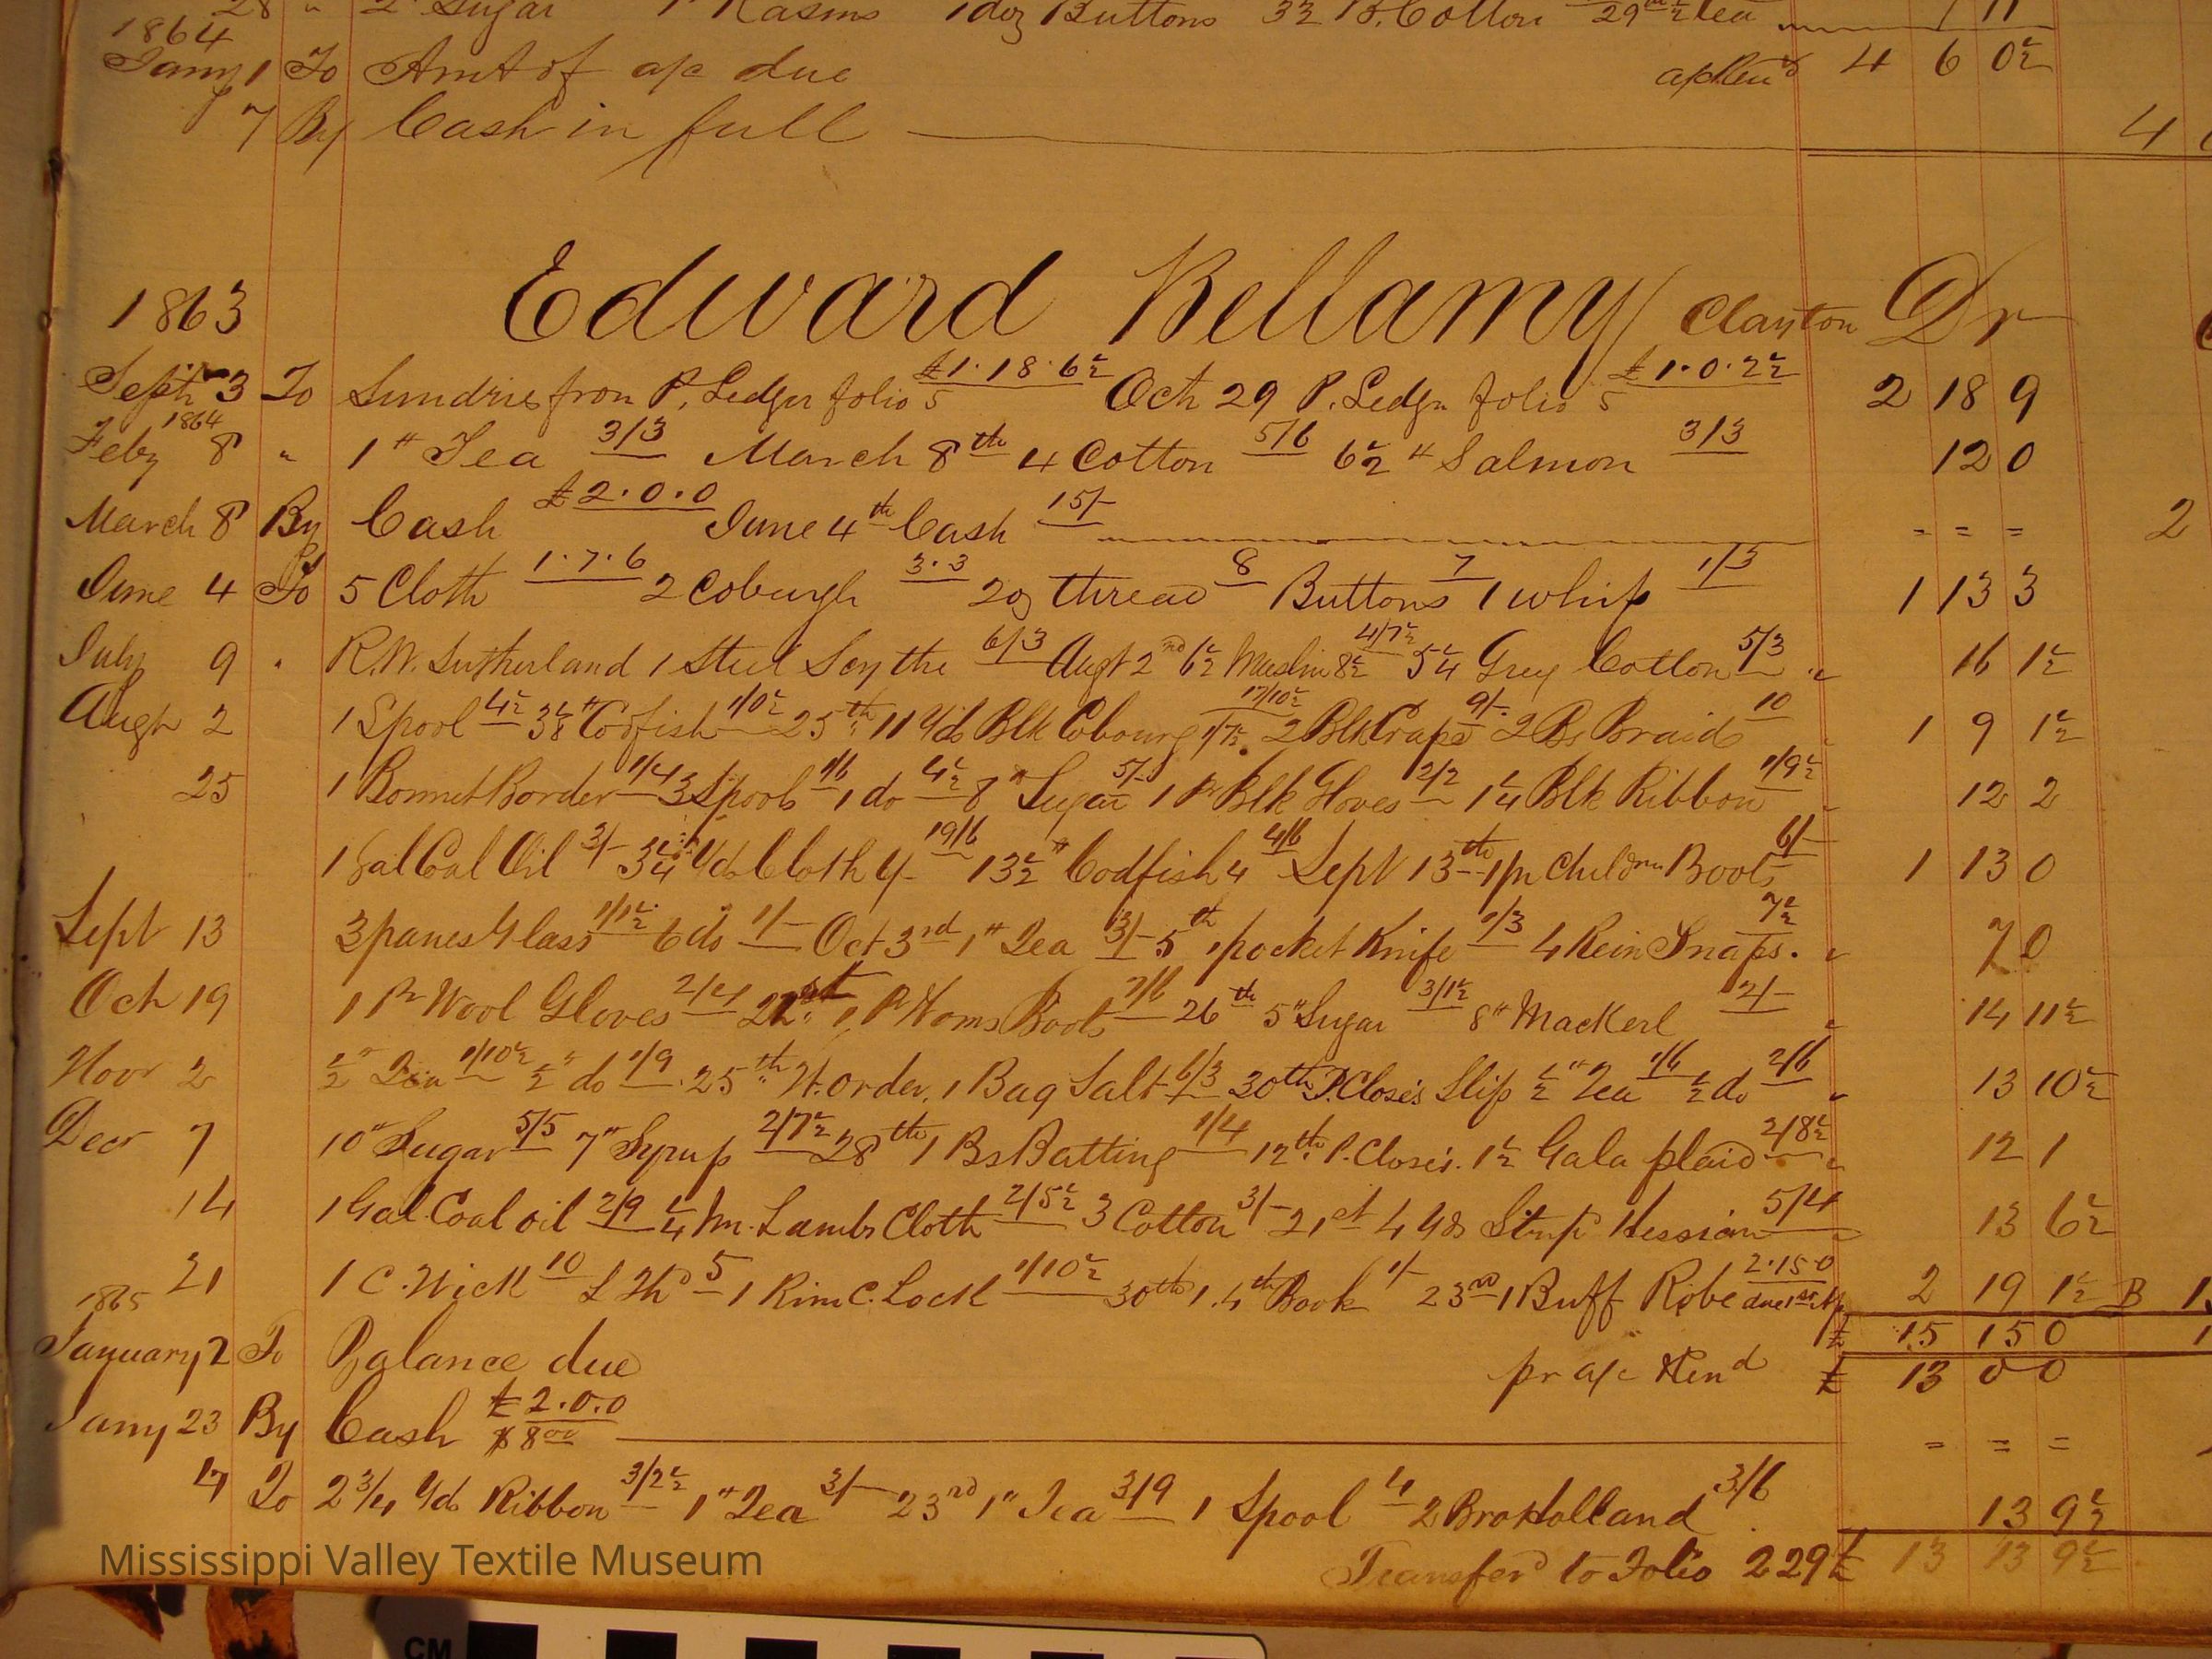 28 " 2 Sugar 1 Rasins 1 doz Buttons 3½ B. Cotton Tea 1 11
1864
Jany 1 To Amt of a/c due 4 6 0½
7 By Cash in full 4
1863 Edward Bellamy Clayton Dr
Sept 3 To Sundries from P. Ledger folio 5 £1.18.6½ Oct 29 P. Ledgr folio 5 £1.0.2½ 2 18 9
1864
Feby 8 " 1 # Tea 3/3 March 8th 4 Cotton 5/6 6½ # Salmon 3/3 12 0
March 8 By Cash £2.0.0 June 4th Cash 15/- = = = 2
June 4 To 5 Cloth 1.7.6 2 Coburgh 3.3 2 oz thread 8 Buttons 7 1 whip 1/3 1 13 3
July 9 " R.W. Sutherland 1 Steel Scythe 6/3 Augt 2nd 6½ Muslin 8½ 4/7½ 5¼ Grey Cotton 5/3 " 16 1½
Augt 2 1 Spool 4½ 3⅛ # Codfish 1/0½ 25th 11 Yds Blk Cobourg 1/7½ 17/10½ 2 Blk Crape 9/- 2 Bs Braid 10 1 9 1½
25 1 Bonnet Border 1/4 3 Spools 1/6 1 do 4½ 8 " Sugar 5/- 1 Pr Blk Gloves 2/2 1¼ Blk Ribbon 1/9½ " 12 2
1 Gal Coal Oil 3/- 3¼ Yds Cloth 19/6 13½ " Codfish 4 4/6 Sept 13th 1 pr Childrn Boots 6/- 1 13 0
Sept 13 3 panes Glass 1/1½ 6 do 1/- Oct 3rd 1 # Tea 3/- 5th 1 pocket Knife 1/3 4 Rein Snaps 7½ " 7 0
Oct 19 1 Pr Wool Gloves 2/4 1 Pr Woms Boots 7/6 26th 5 " Sugar 3/1½ 8 # Mackerl 2/- " 14 11½
Novr 2 ½ " Tea 1/10½ ½ " do 1/9 25th W. order, 1 Bag Salt 6/3 30th P. Close's Slip ½ # Tea 1/6 ½ do 2/6 " 13 10½
Decr 7 10 " Sugar 5/5 7 " Syrup 2/7½ 28th 1 Bs Batting 1/4 12th P. Close's. 1½ Gala plaid 2/8½ " 12 1
14 1 Gal. Coal oil 2/9 ¼ m. Lambs Cloth 2/5½ 3 Cotton 3/- 21st 4 Yds Strip Hessian 5/4 13 6½
21 1 C. Wick 10 5 1 Rim C. Lock 1/10½ 30th 1. 4th Book 1/- 23rd 1 Buff Robe 2.15.0 due 1st 2 19 1½ B
£ 15 15 0
1865
January 2 To Balance due pr a/c Rend £ 13 0 0
Jany 23 By Cash £2.0.0 $8.00 = = =
17 To 2 3/4 Yds Ribbon 3/2½ 1 # Tea 3/- 23rd 1 " Tea 3/9 1 Spool 4 2 Bro Holland 3/6 13 9½
Transferd to Folio 229 £ 13 13 9½
Mississippi Valley Textile Museum
CM